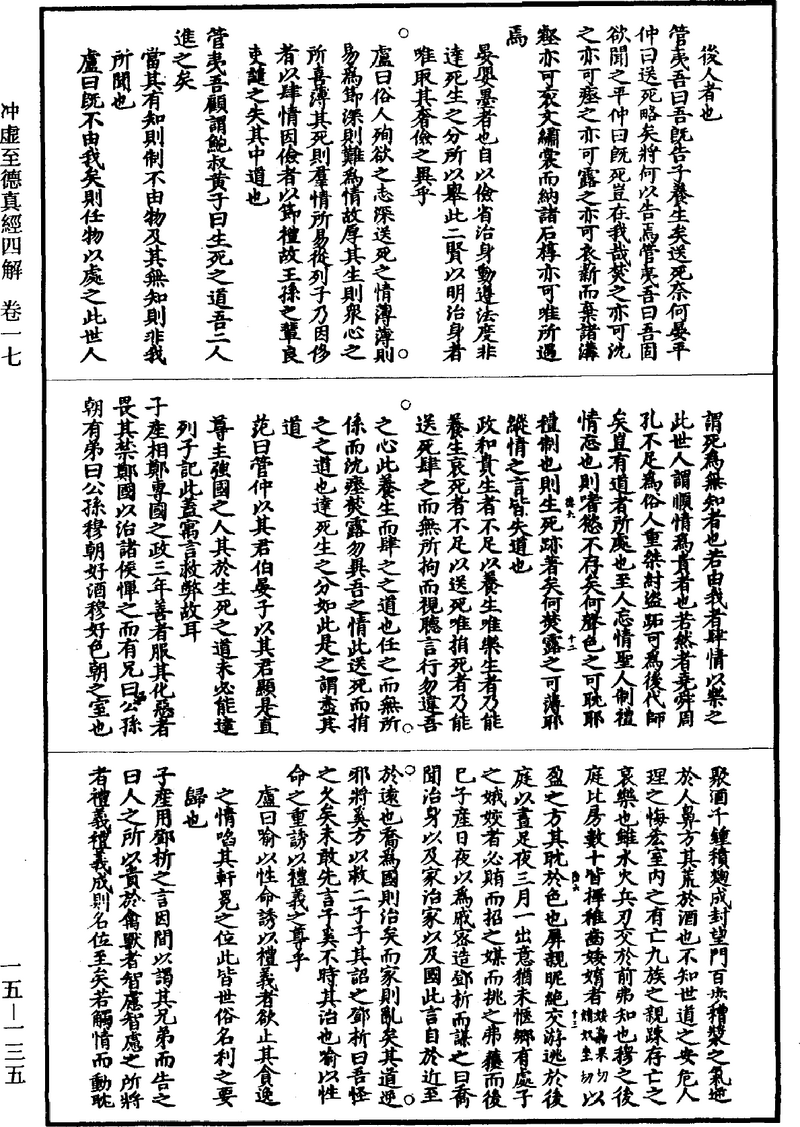 冲虚至德真經四解　卷一七
一五—一三五
後人者也
管夷吾曰吾旣告子養生矣送死奈何晏平
仲曰送死略矣將何以告焉管夷吾曰吾固
欲聞之平仲曰旣死豈在我哉焚之亦可沈
之亦可瘞之亦可露之亦可衣薪而棄諸溝
壑亦可衮文繡裳而納諸石椁亦可唯所遇
焉
晏嬰墨者也自以儉省治身動遵法度非
達死生之分所以舉此二賢以明治身者
唯取其奢儉之異乎
盧曰俗人殉欲之志深送死之情薄薄則
易爲節深則難爲情故厚其生則衆心之
所喜薄其死則羣情所易從列子乃因侈
者以肆情因儉者以節禮故王孫之輩良
史譏之失其中道也
管夷吾顧謂鮑叔黄子曰生死之道吾二人
進之矣
當其有知則制不由物及其無知則非我
所聞也
盧曰旣不由我矣則任物以處之此世人
謂死爲無知者也若由我者肆情以樂之
此世人謂順情爲貴者也若然者堯舜周
孔不足爲俗人重桀紂盜跖可爲後代師
矣豈有道者所處也至人忘情聖人制禮
情忘也則嗜慾不存矣何聲色之可耽耶
禮制也則生死跡著矣何焚露之可薄耶
縱情之言皆失道也
政和貴生者不足以養生唯樂生者乃能
養生哀死者不足以送死唯捐死者乃能
送死肆之而無所拘而視聽言行勿違吾
之心此養生而肆之之道也任之而無所
係而沈瘞焚露勿異吾之情此送死而捐
之之道也達死生之分如此是之謂盡其
道
范曰管仲以其君伯晏子以其君顯是直
尊主強國之人其於生死之道未必能達
列子記此蓋寓言救弊故耳
子產相鄭專國之政三年善者服其化惡者
畏其禁鄭國以治諸侯憚之而有兄曰公孫
朝有弟曰公孫穆朝好酒穆好色朝之室也
聚酒千鍾積麴成封望門百步糟漿之氣逆
於人鼻方其荒於酒也不知世道之安危人
理之悔吝室内之有亡九族之親踈存亡之
哀樂也雖水火兵刃交於前弗知也穆之後
庭比房數十皆擇稚齒婑媠者以
盈之方其耽於色也屏親昵絶交游逃於後
庭以晝足夜三月一出意猶未愜鄉有處子
之娥姣者必賄而招之媒而挑之弗獲而後
已子產日夜以爲戚密造鄧析而謀之曰喬
聞治身以及家治家以及國此言自於近至
於遠也喬爲國則治矣而家則亂矣其道逆
邪將奚方以救二子子其詔之鄧析曰吾怪
之久矣未敢先言子奚不時其治也喻以性
命之重誘以禮義之尊乎
盧曰喻以性命誘以禮義者欲止其貪逸
之情啗其軒冕之位此皆世俗名利之要
歸也
子產用鄧析之言因間以謁其兄弟而告之
曰人之所以貴於禽獸者智慮智慮之所將
者禮義禮義成則名位至矣若觸情而動耽